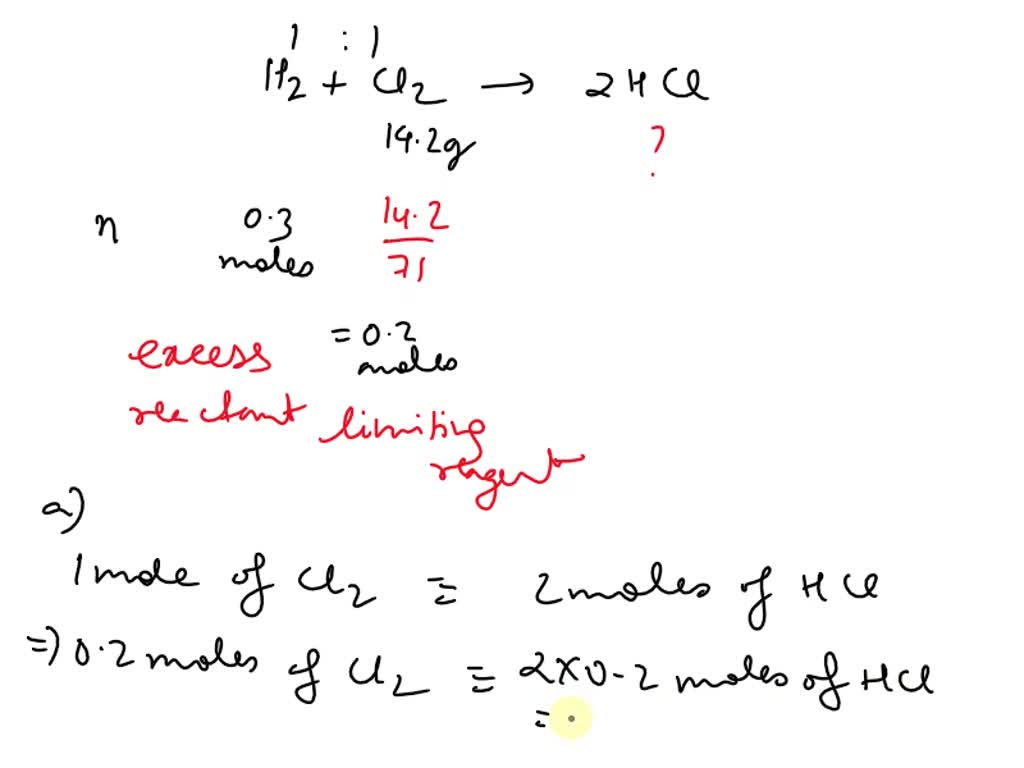 1 : 1
H2 + Cl2 → 2HCl
14.2g ?
n 0.3 moles 14.2/71
= 0.2 moles
excess reactant limiting reagent
a)
1 mole of Cl2 ≡ 2 moles of HCl
=> 0.2 moles of Cl2 ≡ 2x0.2 moles of HCl
=